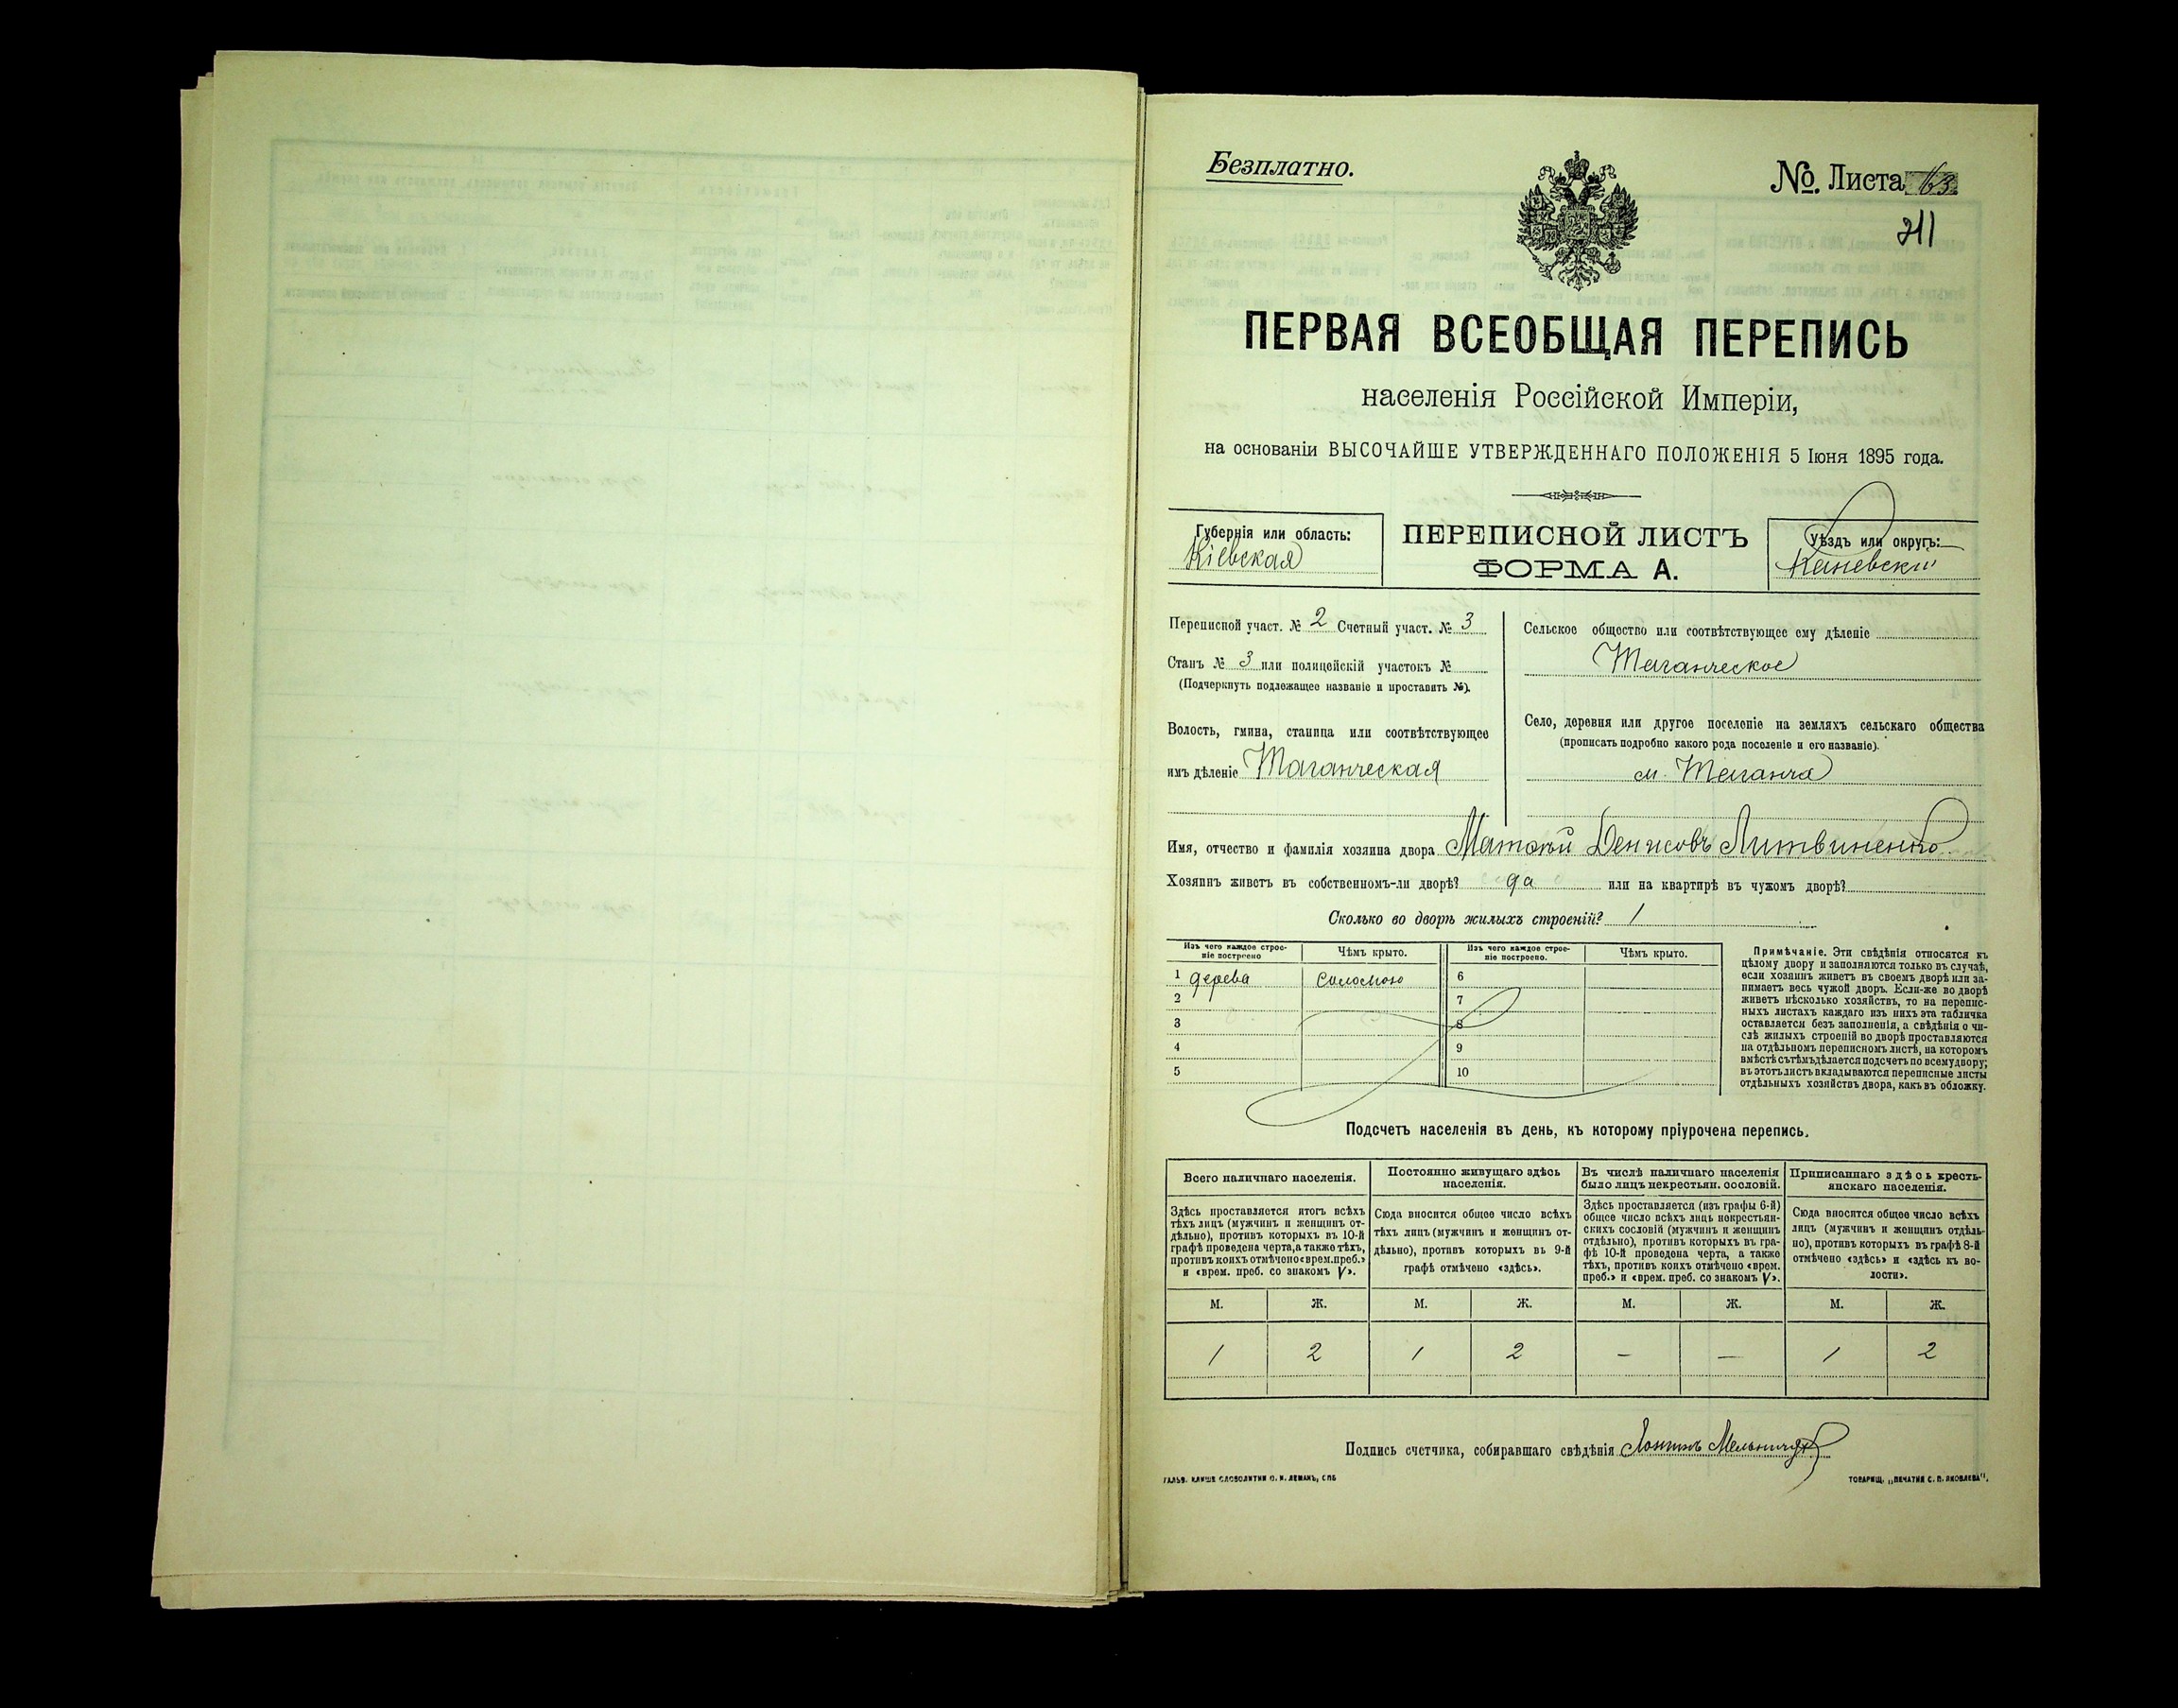 Безплатно.
№. Листа 63
211
ПЕРВАЯ ВСЕОБЩАЯ ПЕРЕПИСЬ
населенія Россійской Имперіи,
на основаніи ВЫСОЧАЙШЕ УТВЕРЖДЕННАГО ПОЛОЖЕНІЯ 5 Іюня 1895 года.
Губернія или область:
Кіевская
ПЕРЕПИСНОЙ ЛИСТЪ
ФОРМА А.
Уѣздъ или округъ:
Каневскій
Переписной участ. № 2 Счетный участ. № 3
Станъ № 3 или полицейскій участокъ №
(Подчеркнуть подлежащее названіе и проставить №).
Волость, гмина, станица или соотвѣтствующее
имъ дѣленіе Таганческая
Сельское общество или соотвѣтствующее ему дѣленіе
Таганческое
Село, деревня или другое поселеніе на земляхъ сельскаго общества
(прописать подробно какого рода поселеніе и его названіе).
м. Таганча
Имя, отчество и фамилія хозяина двора Матѳѣй Денисовъ Литвиненко
Хозяинъ живетъ въ собственномъ-ли дворѣ? да или на квартирѣ въ чужомъ дворѣ?
Сколько во дворѣ жилыхъ строеній? 1
Изъ чего каждое строеніе построено
Чѣмъ крыто.
Изъ чего каждое строеніе построено.
Чѣмъ крыто.
1 дерева соломою 6
2 7
3 8
4 9
5 10
Примѣчаніе. Эти свѣдѣнія относятся къ
цѣлому двору и заполняются только въ случаѣ,
если хозяинъ живетъ въ своемъ дворѣ или за-
нимаетъ весь чужой дворъ. Если-же во дворѣ
живетъ нѣсколько хозяйствъ, то на перепис-
ныхъ листахъ каждаго изъ нихъ эта табличка
оставляется безъ заполненія, а свѣдѣнія о чи-
слѣ жилыхъ строеній во дворѣ проставляются
на отдѣльномъ переписномъ листѣ, на которомъ
вмѣстѣ съ тѣмъ дѣлается подсчетъ по всему двору;
въ этотъ листъ вкладываются переписные листы
отдѣльныхъ хозяйствъ двора, какъ въ обложку.
Подсчетъ населенія въ день, къ которому пріурочена перепись.
Всего наличнаго населенія.
Здѣсь проставляется итогъ всѣхъ
тѣхъ лицъ (мужчинъ и женщинъ от-
дѣльно), противъ которыхъ въ 10-й
графѣ проведена черта, а также тѣхъ,
противъ коихъ отмѣчено «врем. преб.»
и «врем. преб. со знакомъ V».
Постоянно живущаго здѣсь
населенія.
Сюда вносится общее число всѣхъ
тѣхъ лицъ (мужчинъ и женщинъ от-
дѣльно), противъ которыхъ въ 9-й
графѣ отмѣчено «здѣсь».
Въ числѣ наличнаго населенія
было лицъ некрестьян. сословій.
Здѣсь проставляется (изъ графы 6-й)
общее число всѣхъ лицъ некрестьян-
скихъ сословій (мужчинъ и женщинъ
отдѣльно), противъ которыхъ въ гра-
фѣ 10-й проведена черта, а также
тѣхъ, противъ коихъ отмѣчено «врем.
преб.» и «врем. преб. со знакомъ V».
Приписаннаго здѣсь кресть-
янскаго населенія.
Сюда вносится общее число всѣхъ
лицъ (мужчинъ и женщинъ отдѣль-
но), противъ которыхъ въ графѣ 8-й
отмѣчено «здѣсь» и «здѣсь къ во-
лости».
М. Ж. М. Ж. М. Ж. М. Ж.
1 2 1 2 — — 1 2
Подпись счетчика, собиравшаго свѣдѣнія Логинъ Мельничук
ГАЛЬВ. КЛИШЕ СЛОВОЛИТНИ О. И. ЛЕМАНЪ, СПБ
ТОВАРИЩ. „ПЕЧАТНЯ С. П. ЯКОВЛЕВА".